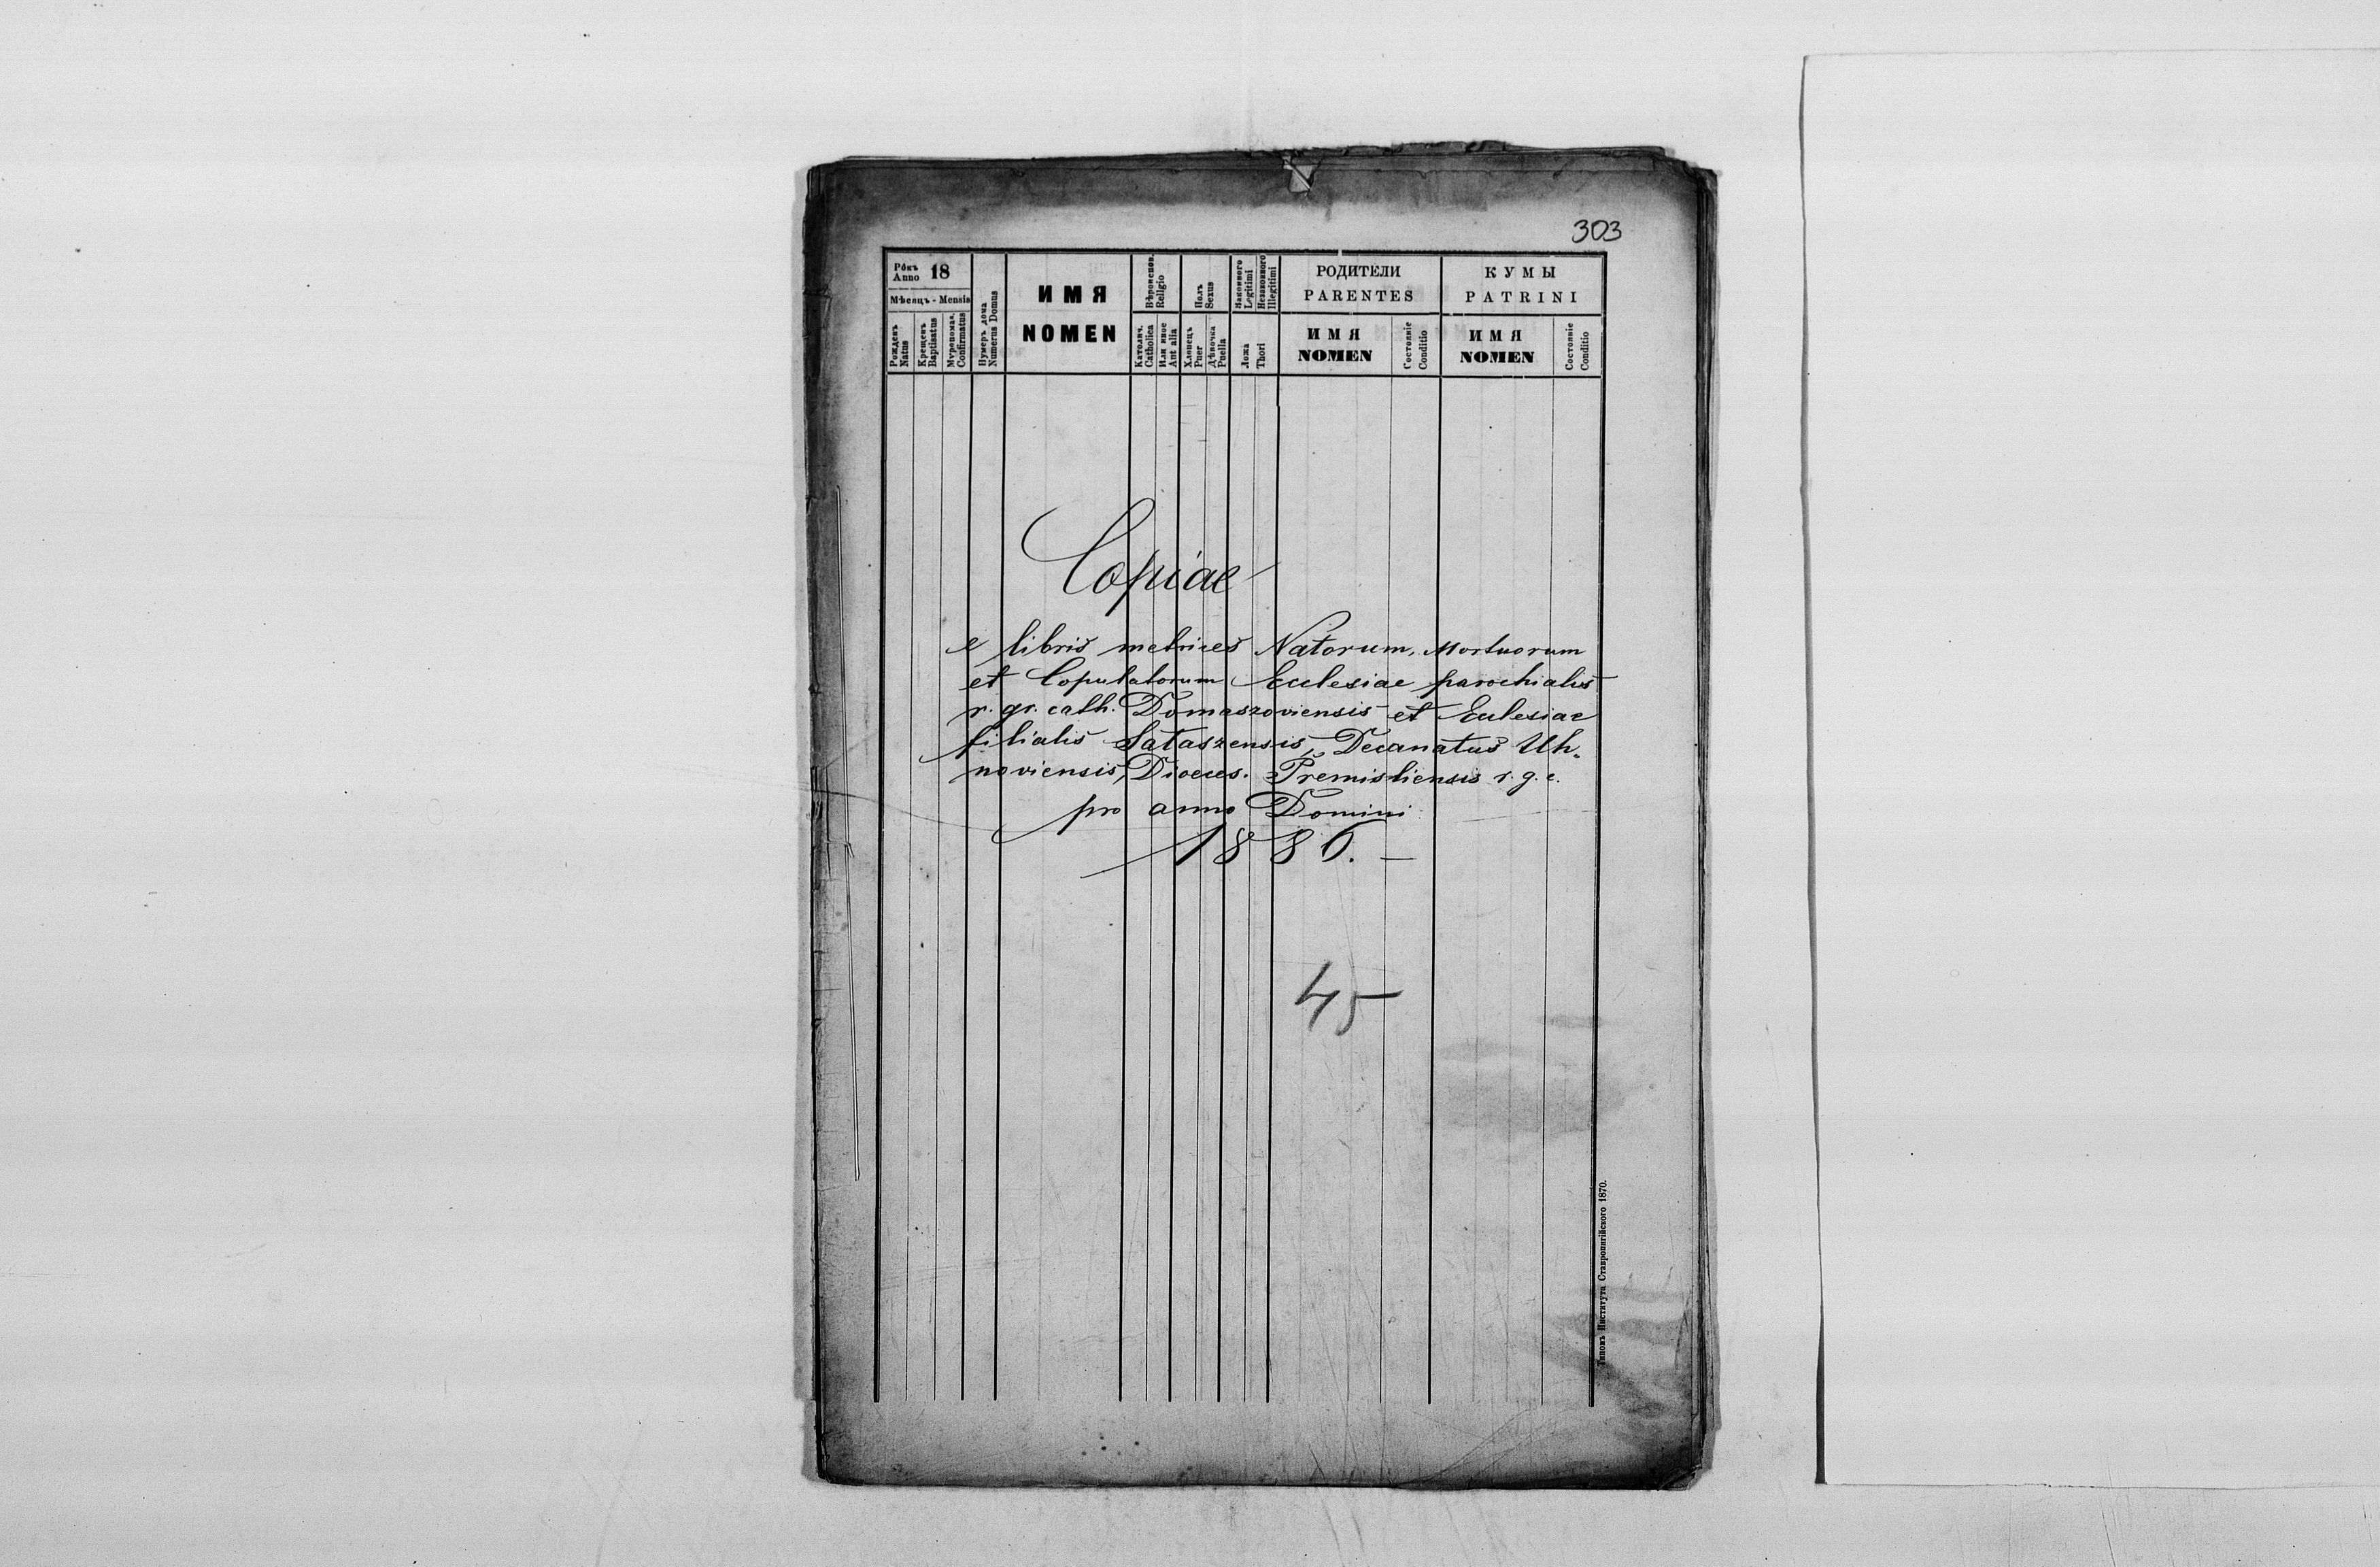 303
Рôкъ
Anno 18
Мѣсяцъ - Mensis
Рожденъ
Natus
Крещенъ
Baptisatus
Муропомаз.
Confirmatus
Нумеръ дома
Numerus Domus
ИМЯ
NOMEN
Вѣроисповѣд.
Religio
Католич.
Catholica
Или иное
Aut alia
Полъ
Sexus
Хлопецъ
Puer
Дѣвочка
Puella
Законного
Legitimi
Незаконного
Illegitimi
Ложа
Thori
РОДИТЕЛИ
PARENTES
ИМЯ
NOMEN
Состояніе
Conditio
КУМЫ
PATRINI
ИМЯ
NOMEN
Состояніе
Conditio
Copiae
e libris metrices Natorum, Mortuorum
et Copulatorum Ecclesiae parochialis
r. gr. cath. Domaszoviensis et Eclesiae
filialis Sataszensis, Decanatus Uh-
noviensis, Dioeces. Premisliensis r. g. c.
pro anno Domini
1886. —
45
Типомъ Института Ставропигійского 1870.